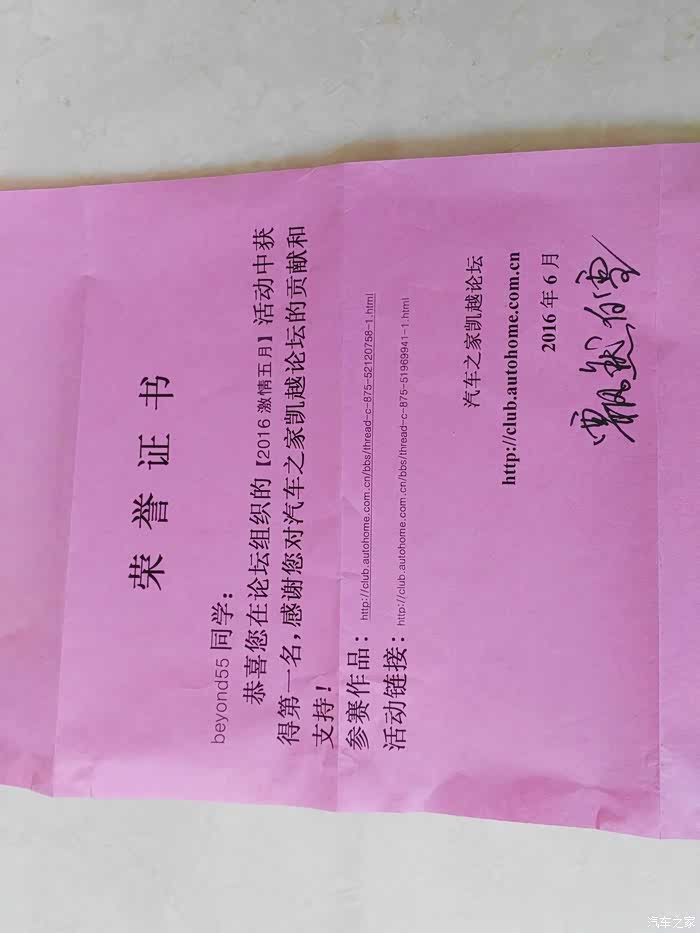 荣誉证书
beyond55 同学：
恭喜您在论坛组织的【2016 激情五月】活动中获
得第一名，感谢您对汽车之家凯越论坛的贡献和
支持！
参赛作品：http://club.autohome.com.cn/bbs/thread-c-875-52120758-1.html
活动链接：http://club.autohome.com.cn/bbs/thread-c-875-51969941-1.html
汽车之家凯越论坛
http://club.autohome.com.cn
2016 年 6 月
汽车之家